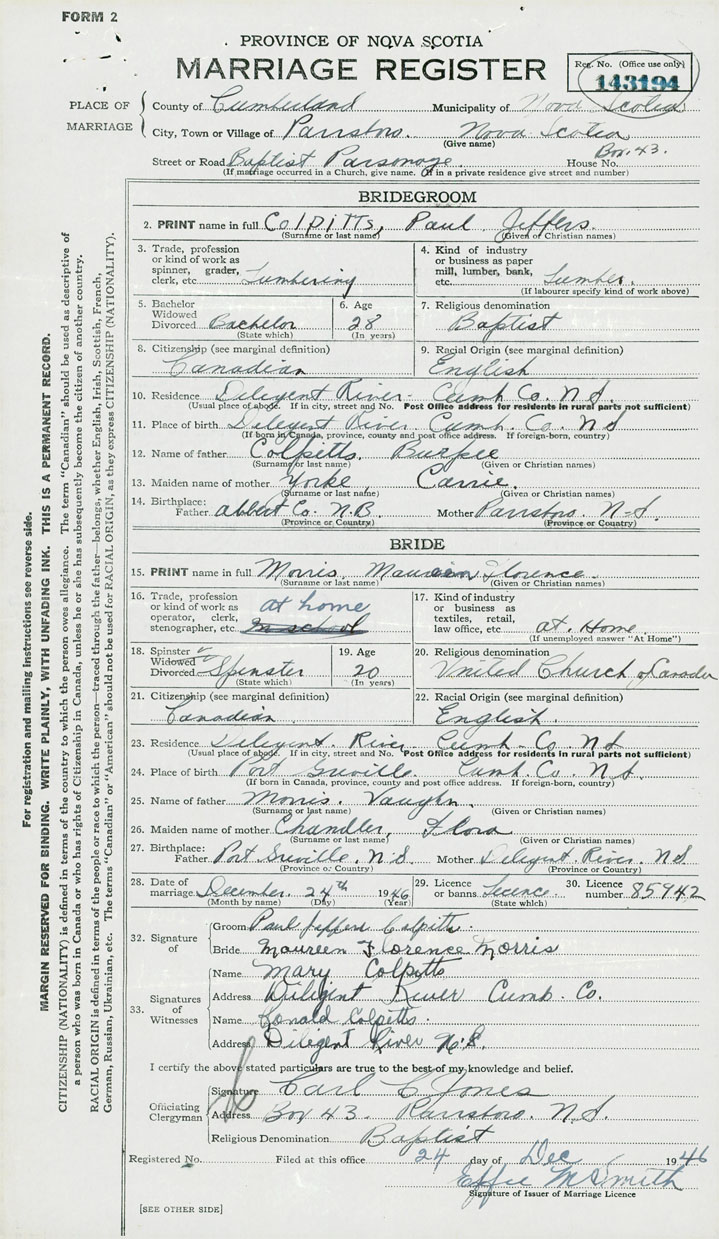 FORM 2
PROVINCE OF NOVA SCOTIA
MARRIAGE REGISTER
Reg. No. (Office use only)
143194
PLACE OF MARRIAGE
County of Cumberland Municipality of Nova Scotia
City, Town or Village of Parrsboro. Nova Scotia
(Give name)
Box. 43.
Street or Road Baptist Parsonage. House No.
(If marriage occurred in a Church, give name. Or in a private residence give street and number)
BRIDEGROOM
2. PRINT name in full Colpitts, Paul Jeffers.
(Surname or last name) (Given or Christian names)
3. Trade, profession or kind of work as spinner, grader, clerk, etc. Lumbering
4. Kind of industry or business as paper mill, lumber, bank, etc. Lumber.
(If labourer specify kind of work above)
5. Bachelor Widowed Divorced Bachelor
(State which)
6. Age 28
(In years)
7. Religious denomination Baptist
8. Citizenship (see marginal definition) Canadian
9. Racial Origin (see marginal definition) English
10. Residence Diligent River- Cumb. Co. N S.
(Usual place of abode. If in city, street and No. Post Office address for residents in rural parts not sufficient)
11. Place of birth Diligent River. Cumb. Co. N S
(If born in Canada, province, county and post office address. If foreign-born, country)
12. Name of father Colpitts Burpee
(Surname or last name) (Given or Christian names)
13. Maiden name of mother Yorke, Carrie.
(Surname or last name) (Given or Christian names)
14. Birthplace: Father Albert Co. N.B. Mother Parrsboro. N-S.
(Province or Country) (Province or Country)
BRIDE
15. PRINT name in full Morris, Maureen Florence.
(Surname or last name) (Given or Christian names)
16. Trade, profession or kind of work as operator, clerk, stenographer, etc. at home
in school
17. Kind of industry or business as textiles, retail, law office, etc. at. Home.
(If unemployed answer "At Home")
18. Spinster Widowed Divorced Spinster
(State which)
19. Age 20
(In years)
20. Religious denomination United Church of Canada
21. Citizenship (see marginal definition) Canadian.
22. Racial Origin (see marginal definition) English.
23. Residence Diligent. River Cumb. Co. N S
(Usual place of abode. If in city, street and No. Post Office address for residents in rural parts not sufficient)
24. Place of birth Port Greville. Cumb. Co. N S.
(If born in Canada, province, county and post office address. If foreign-born, country)
25. Name of father Morris. Vaughn.
(Surname or last name) (Given or Christian names)
26. Maiden name of mother Chandler, Flora
(Surname or last name) (Given or Christian names)
27. Birthplace: Father Port Greville. N S. Mother Diligent. River. N S
(Province or Country) (Province or Country)
28. Date of marriage December. 24th 1946
(Month by name) (Day) (Year)
29. Licence or banns Licence.
(State which)
30. Licence number 85942
32. Signature of
Groom Paul Jeffers Colpitts.
Bride Maureen Florence Morris
33. Signatures of Witnesses
Name Mary Colpitts
Address Diligent River Cumb. Co.
Name Ronald Colpitts.
Address Diligent River N.S.
I certify the above stated particulars are true to the best of my knowledge and belief.
Officiating Clergyman
Signature Carl C Jones
Address Box 43. Parrsboro. N. S.
Religious Denomination Baptist
Registered No. Filed at this office 24 day of Dec 1946
Effie M Smith
Signature of Issuer of Marriage Licence
[SEE OTHER SIDE]
For registration and mailing instructions see reverse side.
MARGIN RESERVED FOR BINDING. WRITE PLAINLY, WITH UNFADING INK. THIS IS A PERMANENT RECORD.
CITIZENSHIP (NATIONALITY) is defined in terms of the country to which the person owes allegiance. The term "Canadian" should be used as descriptive of
a person who was born in Canada or who has rights of Citizenship in Canada, unless he or she has subsequently become the citizen of another country.
RACIAL ORIGIN is defined in terms of the people or race to which the person—traced through the father—belongs, whether English, Irish, Scottish, French,
German, Russian, Ukrainian, etc. The terms "Canadian" or "American" should not be used for RACIAL ORIGIN, as they express CITIZENSHIP (NATIONALITY).